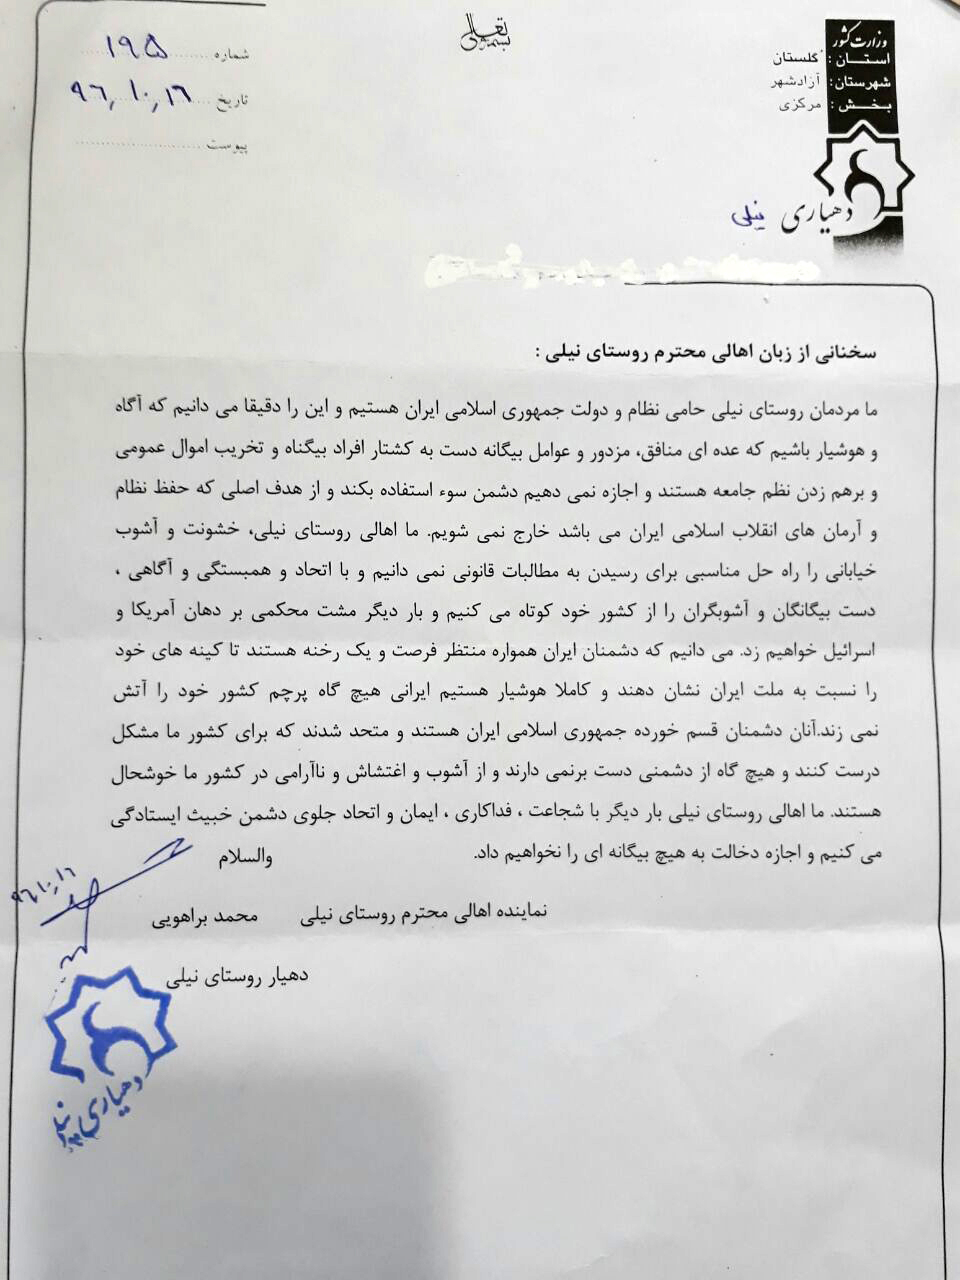 بسمه تعالی
وزارت کشور
استان : گلستان
شهرستان: آزادشهر
بخش : مرکزی
دهیاری نیلی
شماره ........ ۱۹۵
تاریخ ... ۹۶/۱۰/۱۶
پیوست ........................
سخنانی از زبان اهالی محترم روستای نیلی :
ما مردمان روستای نیلی حامی نظام و دولت جمهوری اسلامی ایران هستیم و این را دقیقا می دانیم که آگاه
و هوشیار باشیم که عده ای منافق، مزدور و عوامل بیگانه دست به کشتار افراد بیگناه و تخریب اموال عمومی
و برهم زدن نظم جامعه هستند و اجازه نمی دهیم دشمن سوء استفاده بکند و از هدف اصلی که حفظ نظام
و آرمان های انقلاب اسلامی ایران می باشد خارج نمی شویم. ما اهالی روستای نیلی، خشونت و آشوب
خیابانی را راه حل مناسبی برای رسیدن به مطالبات قانونی نمی دانیم و با اتحاد و همبستگی و آگاهی ،
دست بیگانگان و آشوبگران را از کشور خود کوتاه می کنیم و بار دیگر مشت محکمی بر دهان آمریکا و
اسرائیل خواهیم زد. می دانیم که دشمنان ایران همواره منتظر فرصت و یک رخنه هستند تا کینه های خود
را نسبت به ملت ایران نشان دهند و کاملا هوشیار هستیم ایرانی هیچ گاه پرچم کشور خود را آتش
نمی زند.آنان دشمنان قسم خورده جمهوری اسلامی ایران هستند و متحد شدند که برای کشور ما مشکل
درست کنند و هیچ گاه از دشمنی دست برنمی دارند و از آشوب و اغتشاش و ناآرامی در کشور ما خوشحال
هستند. ما اهالی روستای نیلی بار دیگر با شجاعت ، فداکاری ، ایمان و اتحاد جلوی دشمن خبیث ایستادگی
می کنیم و اجازه دخالت به هیچ بیگانه ای را نخواهیم داد.
والسلام
نماینده اهالی محترم روستای نیلی محمد براهویی
دهیار روستای نیلی
۹۶/۱۰/۱۶
دهیاری نیلی